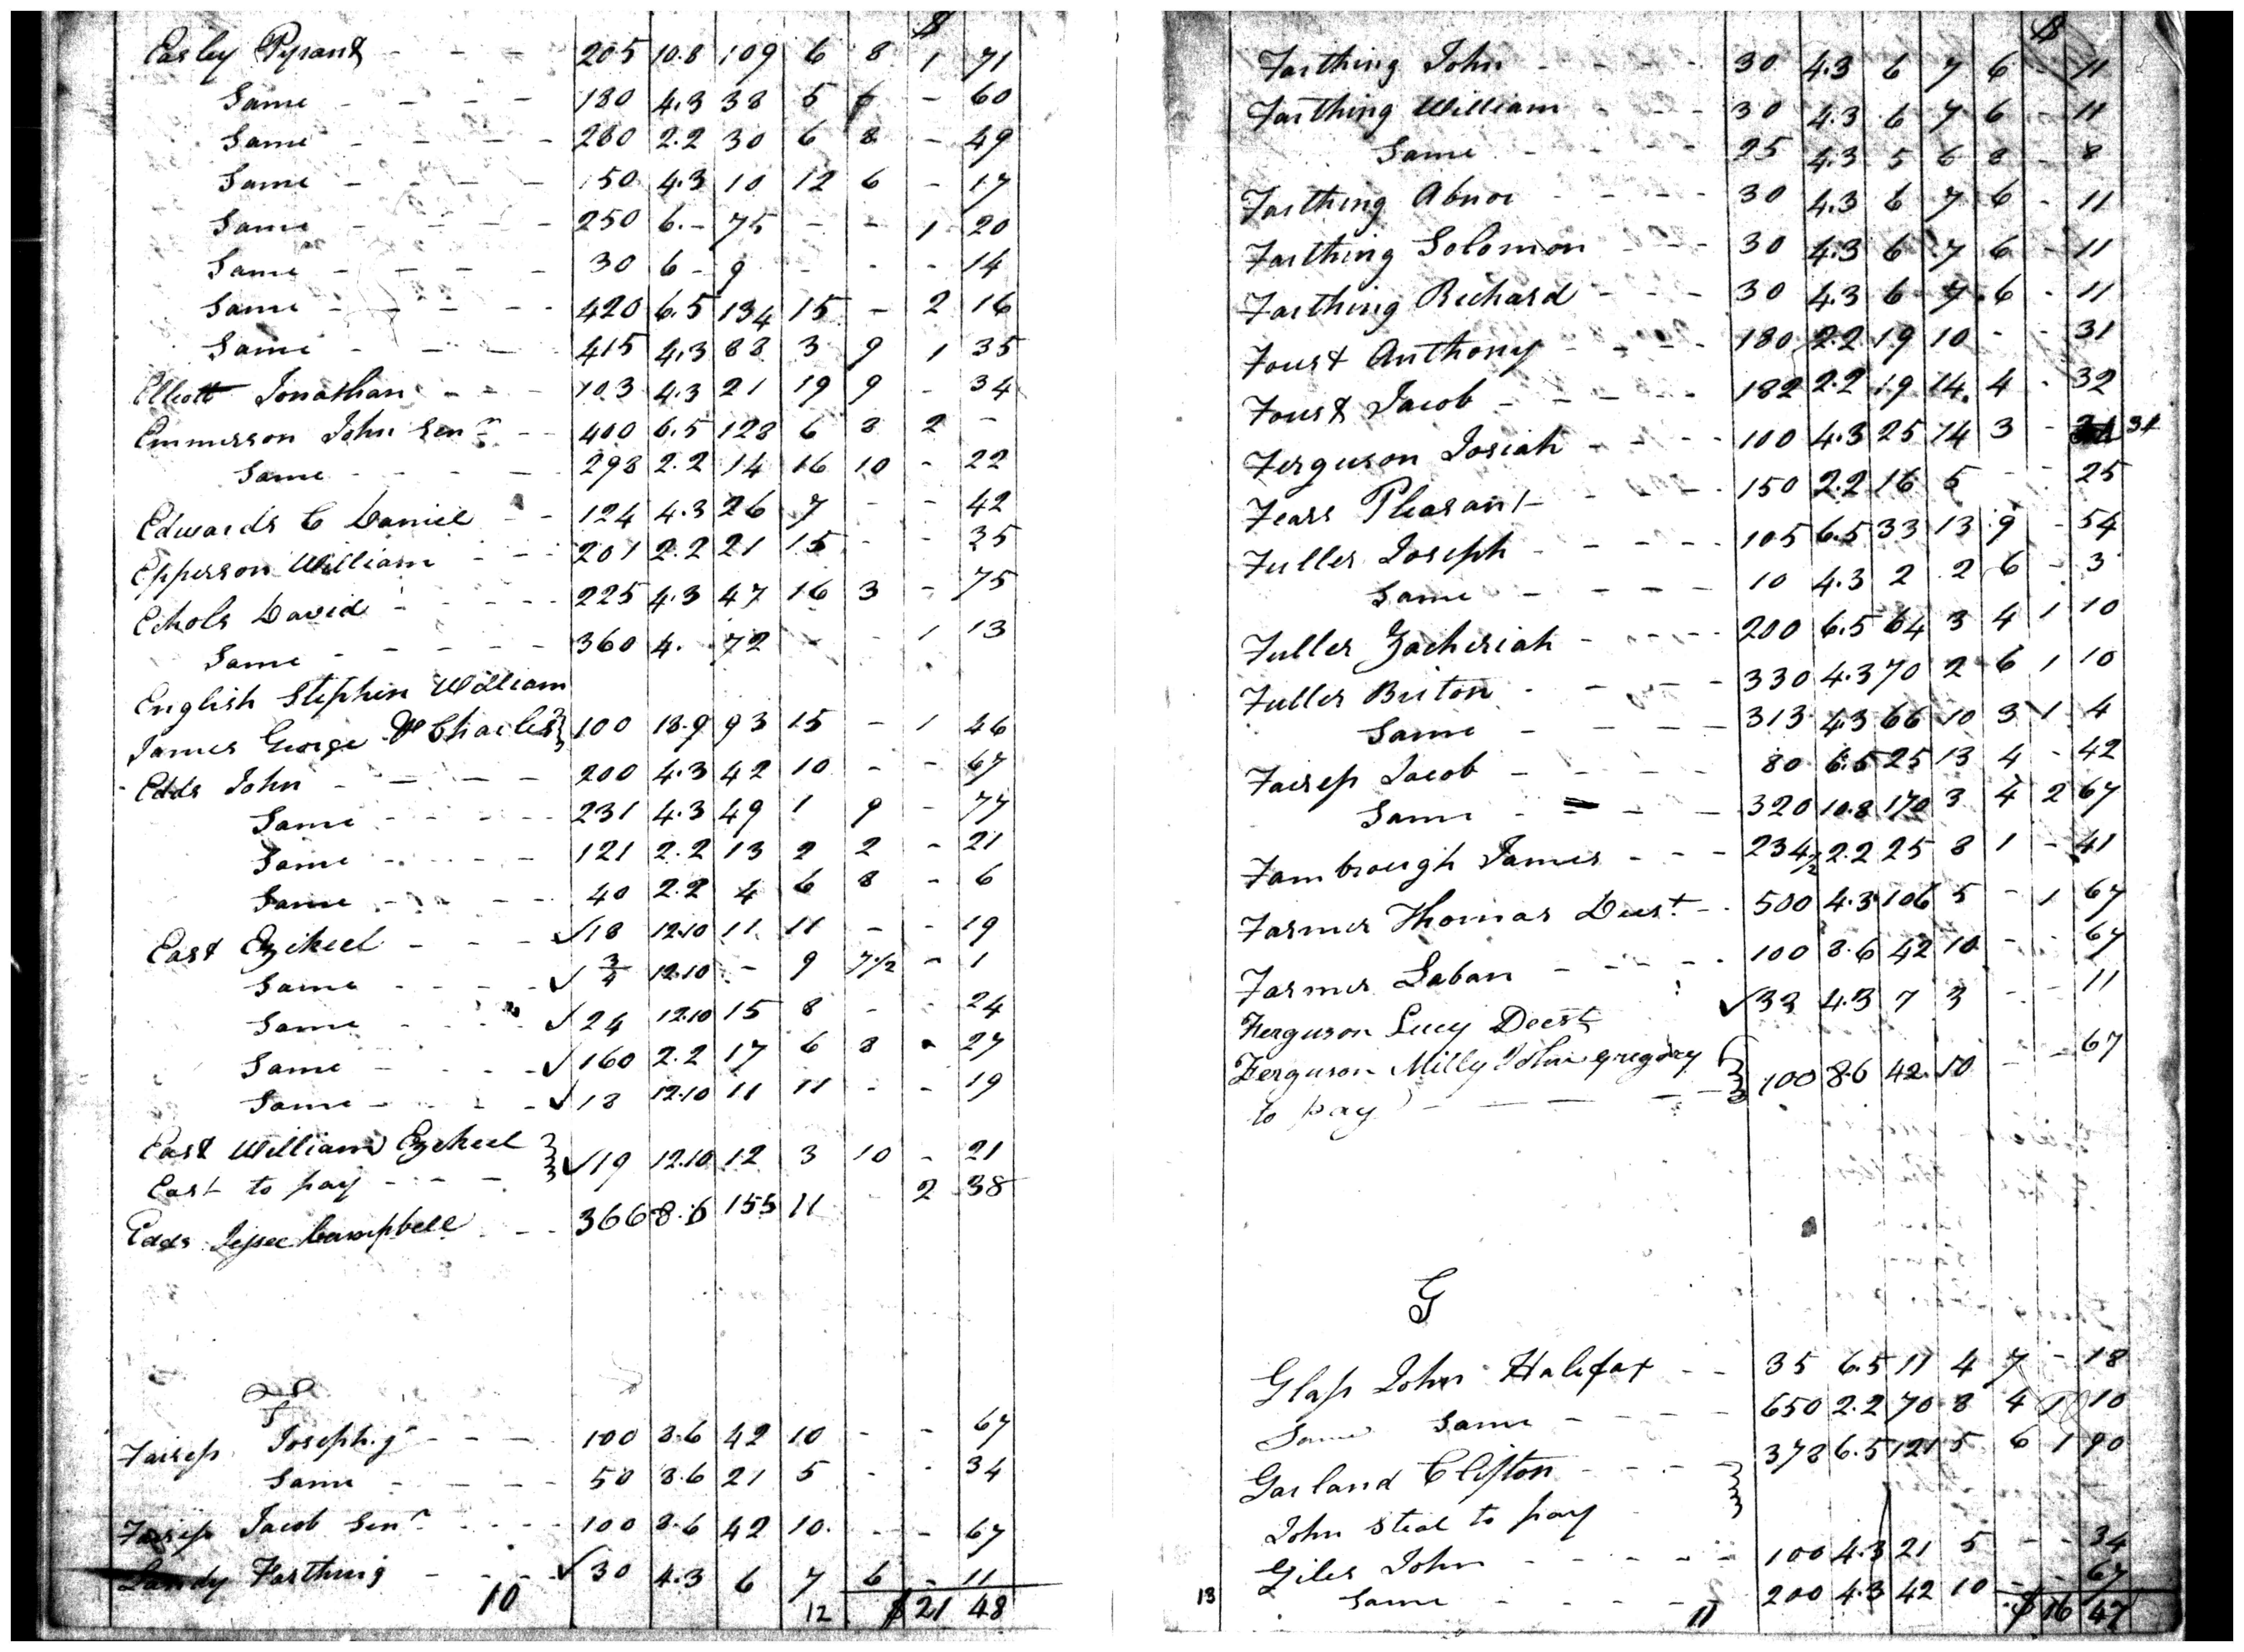 $
Easley Pyrant - - - 205 10.8 109 6 8 1 71
Same - - - - 180 4.3 38 5 - 60
Same - - - - 280 2.2 30 6 8 - 49
Same - - - - 50 4.3 10 12 6 - 17
Same - - - - 250 6.- 75 - - 1 20
Same - - - - 30 6 - 9 - - - 14
Same - - - - 420 6.5 134 15 - 2 16
Same - - - 415 4.3 88 3 9 1 35
Elliott Jonathan - - - 103 4.3 21 19 9 - 34
Emmerson John Senr - - 400 6.5 128 6 8 2 -
Same - - - 298 2.2 14 16 10 - 22
Edwards C Daniel - - 124 4.3 26 7 - - 42
Epperson William - - - 201 2.2 21 15 - - 35
Echols David - - - - 225 4.3 47 16 3 - 75
Same - - - - - 360 4. 72 - - 1 13
English Stephen William
James George & Charles } 100 18.9 93 15 - 1 46
Edds John - - - - 200 4.3 42 10 - - 67
Same - - - - - 231 4.3 49 1 9 - 77
Same - - - - 121 2.2 13 2 2 - 21
Same - - - - 40 2.2 4 6 8 - 6
East Ezekiel - - - ✓18 12.10 11 11 - - 19
Same - - - - ✓ 3/4 12.10 - 9 7 1/2 - 1
Same - - - ✓24 12.10 15 8 - - 24
Same - - - ✓160 2.2 17 6 8 - 27
Same - - - - ✓18 12.10 11 11 - - 19
East William Ezekiel }
East to pay - - - } ✓19 12.10 12 3 10 - 21
Edds Jesse Campbell - - 366 8.6 155 11 - 2 38
F
Faress Joseph. g - - - 100 8.6 42 10 - - 67
Same - - - - 50 8.6 21 5 - - 34
Faress Jacob Senr - - - 100 8.6 42 10. - - 67
Landy Farthing - - - ✓30 4.3 6 7 6 - 11
10 12 $ 21 48
$
Farthing John - - - - 30 4.3 6 7 6 - 11
Farthing William - - - 30 4.3 6 7 6 - 11
Same - - - - 25 4.3 5 6 3 - 8
Farthing Abner - - - - 30 4.3 6 7 6 - 11
Farthing Solomon - - - 30 4.3 6 7 6 - 11
Farthing Richard - - - 30 4.3 6 7 6 - 11
Foust Anthony - - - - 180 2.2 19 10 - - 31
Foust Jacob - - - - - 182 2.2 19 14 4 - 32
Ferguson Josiah - - - - 100 4.3 25 14 3 - 34
Fears Pleasant - - - - 150 2.2 16 5 - - 25
Fuller Joseph - - - - - 105 6.5 33 13 9 - 54
Same - - - - 10 4.3 2 2 6 - 3
Fuller Zacheriah - - - - 200 6.5 64 3 4 1 10
Fuller Briton - - - - 330 4.3 70 2 6 1 10
Same - - - - 313 4.3 66 10 3 1 4
Faress Jacob - - - - 80 6.5 25 13 4 - 42
Same - - - - 320 10.8 170 3 4 2 67
Fambrough James - - - 234 1/2 2.2 25 8 1 - 41
Farmer Thomas Decst - - 500 4.3 106 5 - 1 67
Farmer Laban - - - - 100 8.6 42 10 - - 67
Ferguson Lucy Decst ✓33 4.3 7 3 - - 11
Ferguson Milly John Gregory }
to pay - - - - } 100 8.6 42 10 - - 67
G
Glass John Halifax - - 35 6.5 11 4 7 - 18
Same Same - - - - 650 2.2 70 8 4 1 10
Garland Clifton - - - - } 378 6.5 121 5 6 1 90
John Steal to pay }
Giles John - - - - - 100 4.3 21 5 - - 34
Same - - - - - 200 4.3 42 10 - - 67
13 11 $ 16 47